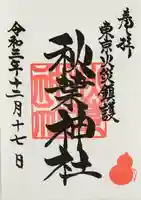 奉拝
東京火災鎮護
秋葉神社
令和三年十二月十七日